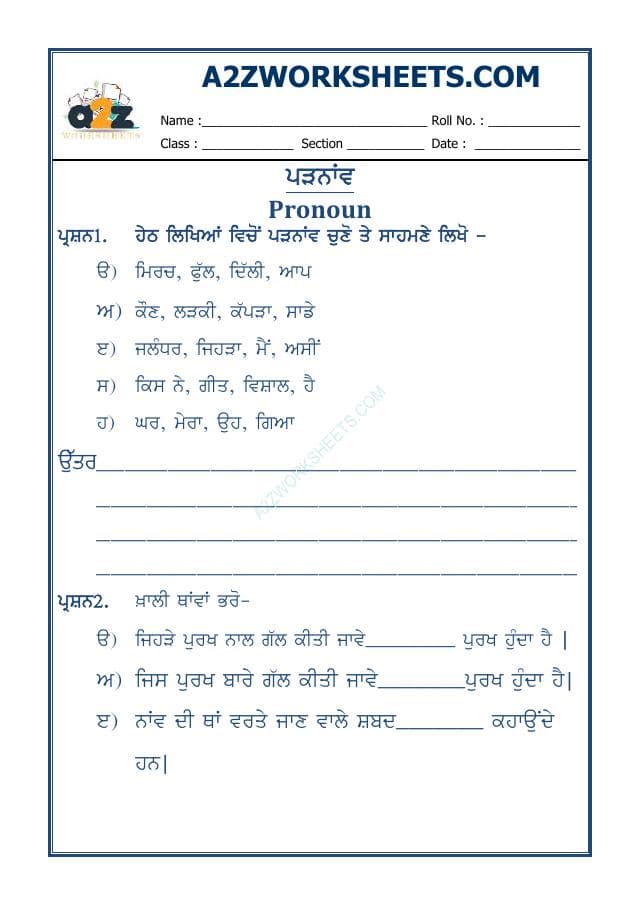 A2ZWORKSHEETS.COM
a2z
WORKSHEETS
Name :______________________________ Roll No. : ____________
Class : ____________ Section __________ Date : ______________
ਪੜਨਾਂਵ
Pronoun
ਪ੍ਰਸ਼ਨ1. ਹੇਠ ਲਿਖਿਆਂ ਵਿਚੋਂ ਪੜਨਾਂਵ ਚੁਣੋ ਤੇ ਸਾਹਮਣੇ ਲਿਖੋ –
ੳ) ਮਿਰਚ, ਫੁੱਲ, ਦਿੱਲੀ, ਆਪ
ਅ) ਕੌਣ, ਲੜਕੀ, ਕੱਪੜਾ, ਸਾਡੇ
ੲ) ਜਲੰਧਰ, ਜਿਹੜਾ, ਮੈਂ, ਅਸੀਂ
ਸ) ਕਿਸ ਨੇ, ਗੀਤ, ਵਿਸ਼ਾਲ, ਹੈ
ਹ) ਘਰ, ਮੇਰਾ, ਉਹ, ਗਿਆ
A2ZWORKSHEETS.COM
ਉੱਤਰ__________________________________
__________________________________
__________________________________
__________________________________
ਪ੍ਰਸ਼ਨ2. ਖ਼ਾਲੀ ਥਾਂਵਾਂ ਭਰੋ-
ੳ) ਜਿਹੜੇ ਪੁਰਖ ਨਾਲ ਗੱਲ ਕੀਤੀ ਜਾਵੇ_________ ਪੁਰਖ ਹੁੰਦਾ ਹੈ |
ਅ) ਜਿਸ ਪੁਰਖ ਬਾਰੇ ਗੱਲ ਕੀਤੀ ਜਾਵੇ_________ਪੁਰਖ ਹੁੰਦਾ ਹੈ|
ੲ) ਨਾਂਵ ਦੀ ਥਾਂ ਵਰਤੇ ਜਾਣ ਵਾਲੇ ਸ਼ਬਦ_________ ਕਹਾਉਂਦੇ
ਹਨ|